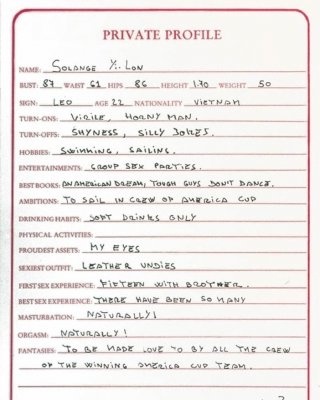 PRIVATE PROFILE
NAME: SOLANGE YI LON
BUST: 87 WAIST 61 HIPS 86 HEIGHT 1.70 WEIGHT 50
SIGN: LEO AGE 22 NATIONALITY VIETNAM
TURN-ONS: VIRILE, HORNY MAN.
TURN-OFFS: SHYNESS, SILLY JOKES.
HOBBIES: SWIMMING, SAILING.
ENTERTAINMENTS: GROUP SEX PARTIES.
BEST BOOKS: AN AMERICAN DREAM; TOUGH GUYS DON'T DANCE.
AMBITIONS: TO SAIL IN CREW OF AMERICA CUP
DRINKING HABITS: SOFT DRINKS ONLY
PHYSICAL ACTIVITIES:
PROUDEST ASSETS: MY EYES
SEXIEST OUTFIT: LEATHER UNDIES
BEST SEX EXPERIENCE: THERE HAVE BEEN SO MANY
MASTURBATION: NATURALLY!
ORGASM: NATURALLY!
FANTASIES: TO BE MADE LOVE TO BY ALL THE CREW
OF THE WINNING AMERICA CUP TEAM.